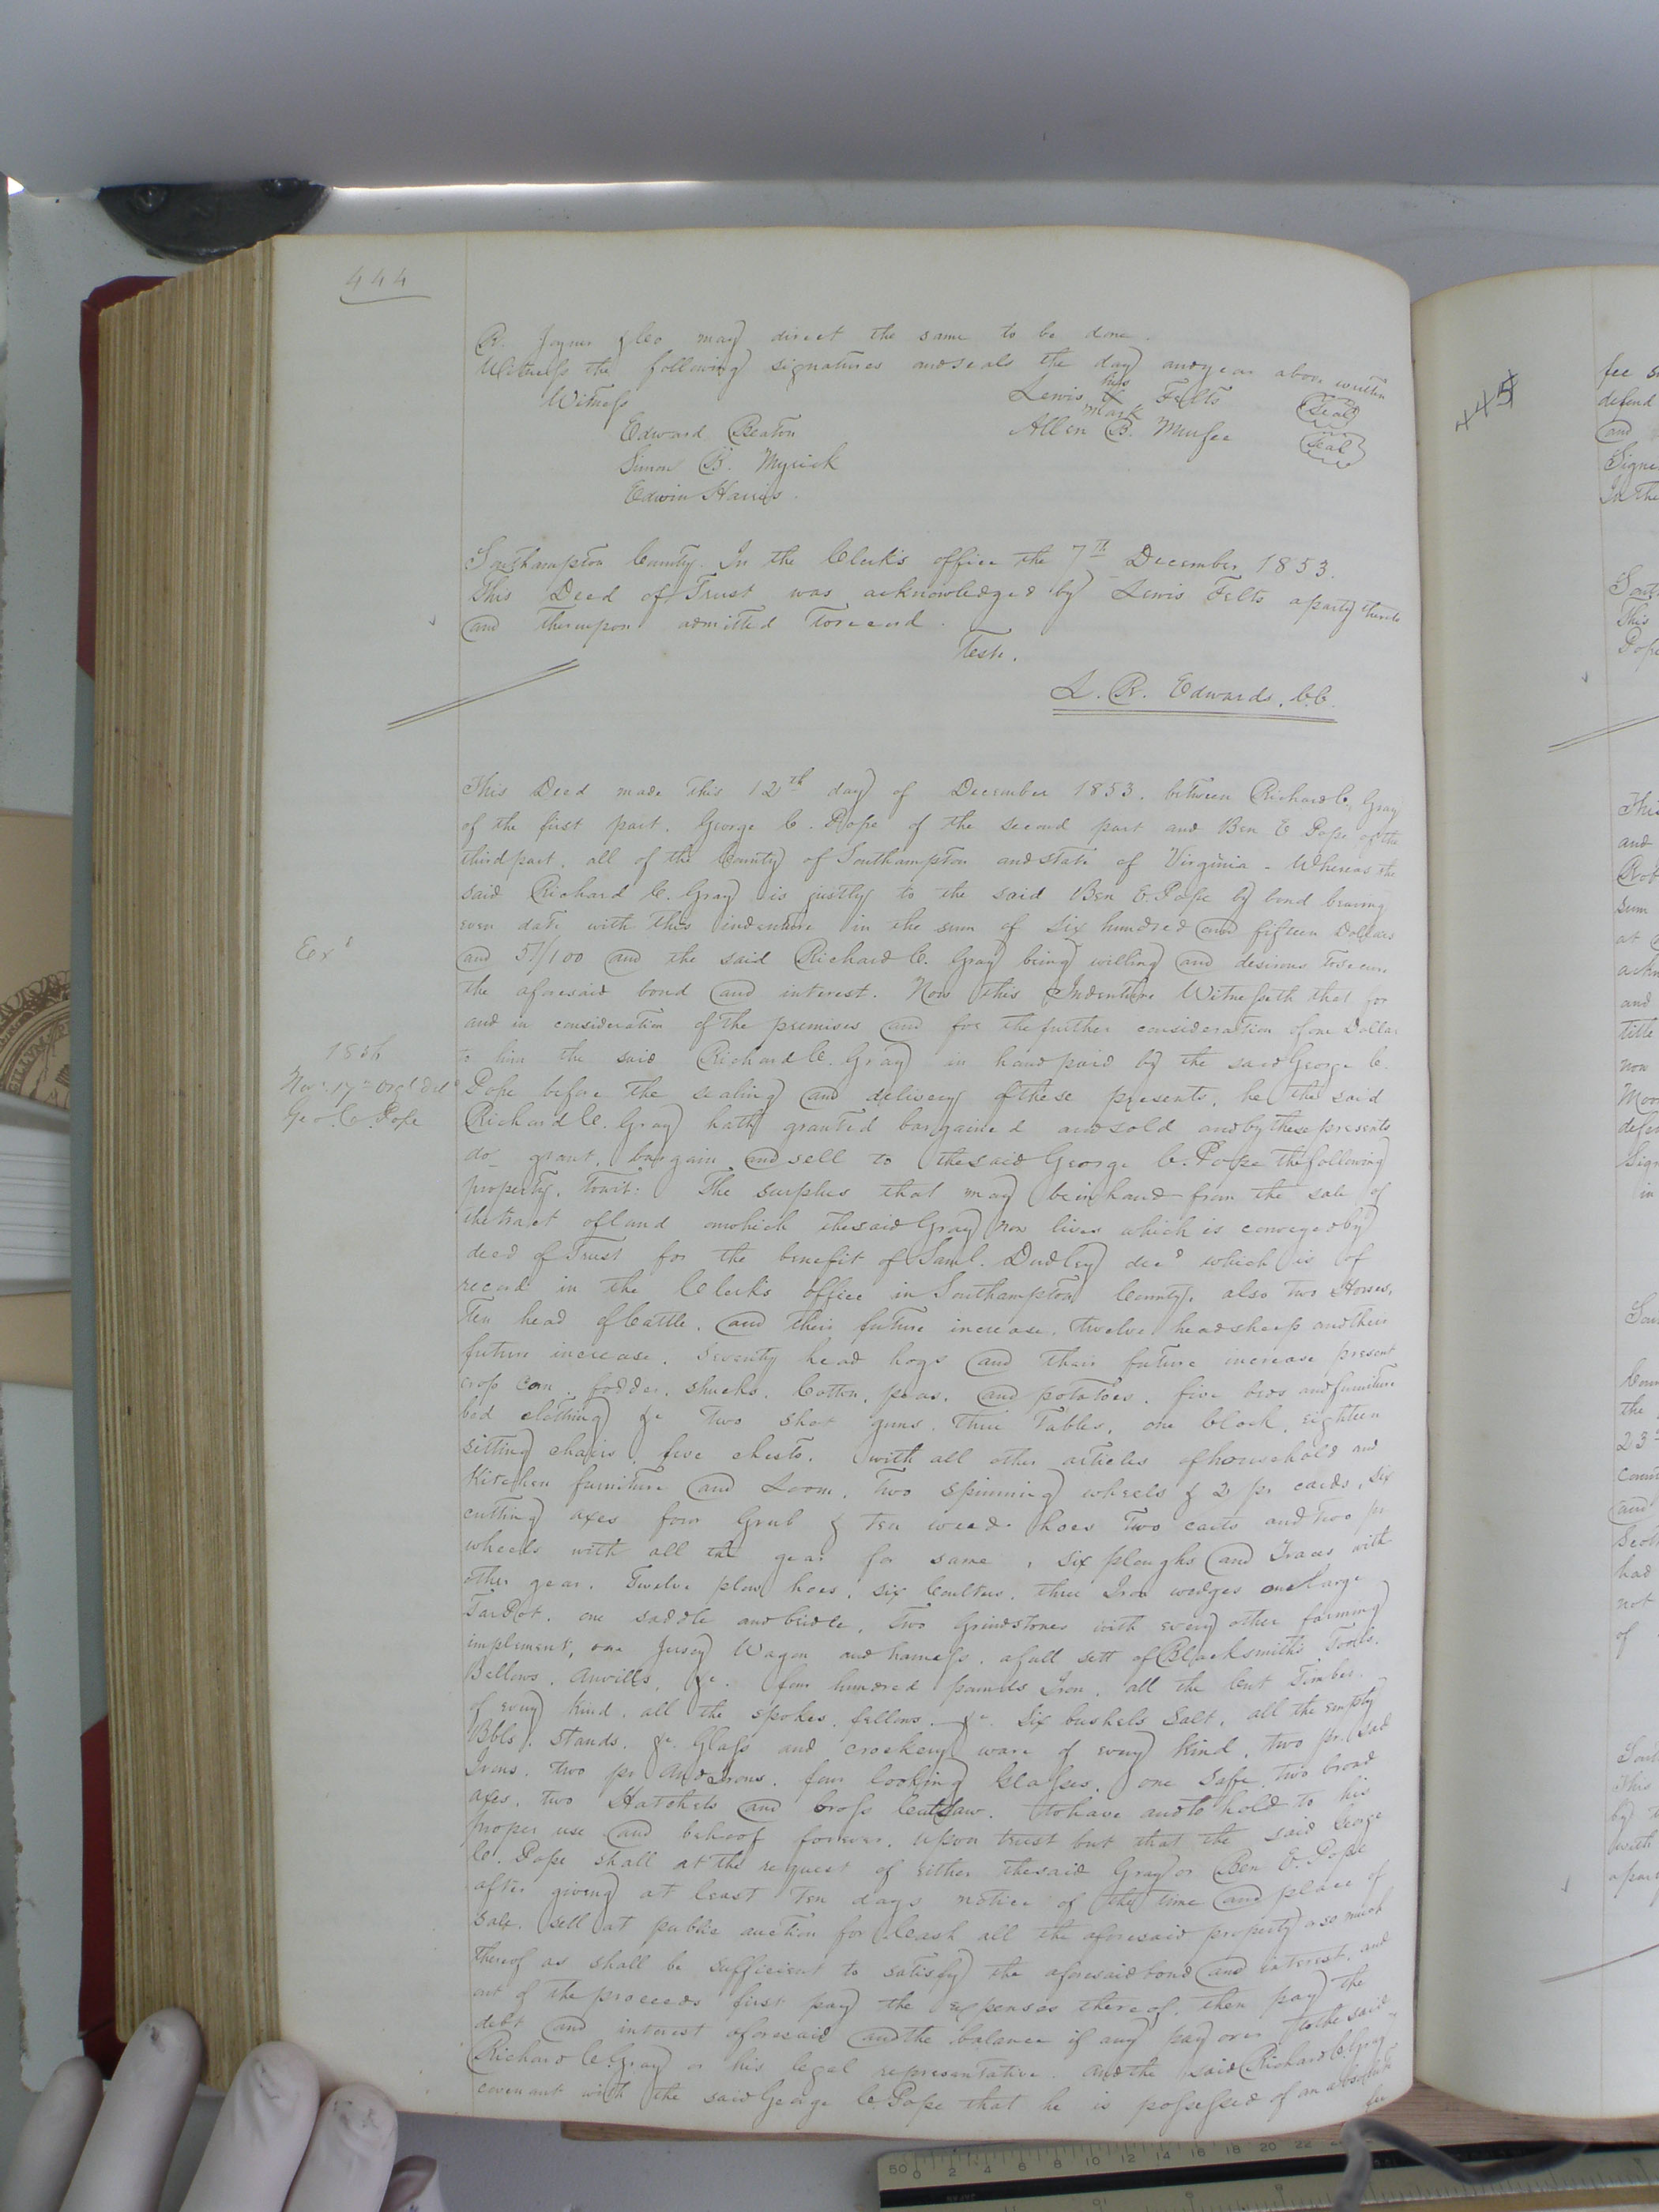 444
R. Joyner & Co may direct the same to be done.
Witness the following signatures and seals the day and year above written
Witness
his
Lewis X Felts (Seal)
mark
Edward Beaton
Allen B. (Seal)
Simon B. Myrick
Edwin Harris.
Southampton County. In the Clerk's office the 7th December 1853.
This Deed of Trust was acknowledged by Lewis Felts a party thereto
and thereupon admitted to record.
Teste.
L. R. Edwards, C.C.
This Deed made this 12th day of December 1853, between Richard C. Gray
of the first part, George C. Pope of the second part and Ben E Pope of the
third part, all of the County of Southampton and state of Virginia - Whereas the
said Richard C. Gray is justly to the said Ben E. Pope by bond bearing
even date with this indenture in the sum of six hundred and fifteen Dollars
and 57/100 and the said Richard C. Gray being willing and desirous to secure
the aforesaid bond and interest. Now this Indenture Witnesseth that for
and in consideration of the premises and for the further consideration of one Dollar
to him the said Richard C. Gray in hand paid by the said George C.
Pope before the sealing and delivery of these presents, he the said
Richard C. Gray hath granted bargained and sold and by these presents
do grant, bargain and sell to the said George C. Pope the following
property, towit: The surplus that may be in hand from the sale of
the tract of land on which the said Gray now lives which is conveyed by
deed of Trust for the benefit of Saml. Dudley decd which is of
record in the Clerk's office in Southampton County, also two Horses,
Ten head of Cattle, and their future increase, twelve head sheep and their
future increase, seventy head hogs and their future increase present
crop corn, fodder, shucks, Cotton, peas, and potatoes, five beds and furniture
bed clothing &c Two shot guns, three Tables, one Clock, eighteen
sitting chairs, five chests, with all other articles of household and
Kitchen furniture and Loom, Two spinning wheels & 2 pr cards, six
cutting axes four Grub & Ten weed hoes Two carts and two pr
wheels with all the gear for same, six ploughs and Traces with
other gear, Twelve plow hoes, six Coulters, three Iron wedges one large
Tar Pot, one saddle and bridle, two Grindstones with every other farming
implement, one Jersey Wagon and harness, a full sett of Blacksmith's Tools,
Bellows, Anvills, &c. four hundred pounds Iron, all the Cut Timber
of every kind, all the spokes, fellows, &c. six bushels Salt, all the empty
Bbls, stands, &c. Glass and crockery ware of every kind, two pr. sad
Irons, two pr Andirons, four looking Glasses, one safe, two broad
axes, two Hatchets and Cross Cut Saw. To have and to hold to his
proper use and behoof forever, upon trust but that the said George
C. Pope shall at the request of either the said Gray or Ben E. Pope
after giving at least Ten days notice of the time and place of
sale, sell at public auction for Cash all the aforesaid property or so much
thereof as shall be sufficient to satisfy the aforesaid bond and interest, and
out of the proceeds first pay the expenses thereof, then pay the
debt and interest aforesaid and the balance if any pay over to the said
Richard C. Gray or his legal representative. And the said Richard C. Gray
covenant with the said George C. Pope that he is possessed of an absolute
fee
Exd
1856
Nov. 17th Orgl Deld
Geo. C. Pope
445
fee
defend
and
Signe
In the
This
Pope
and
Rob
sum
at
and
title
non
in
the
and
had
not
of
This
by
with